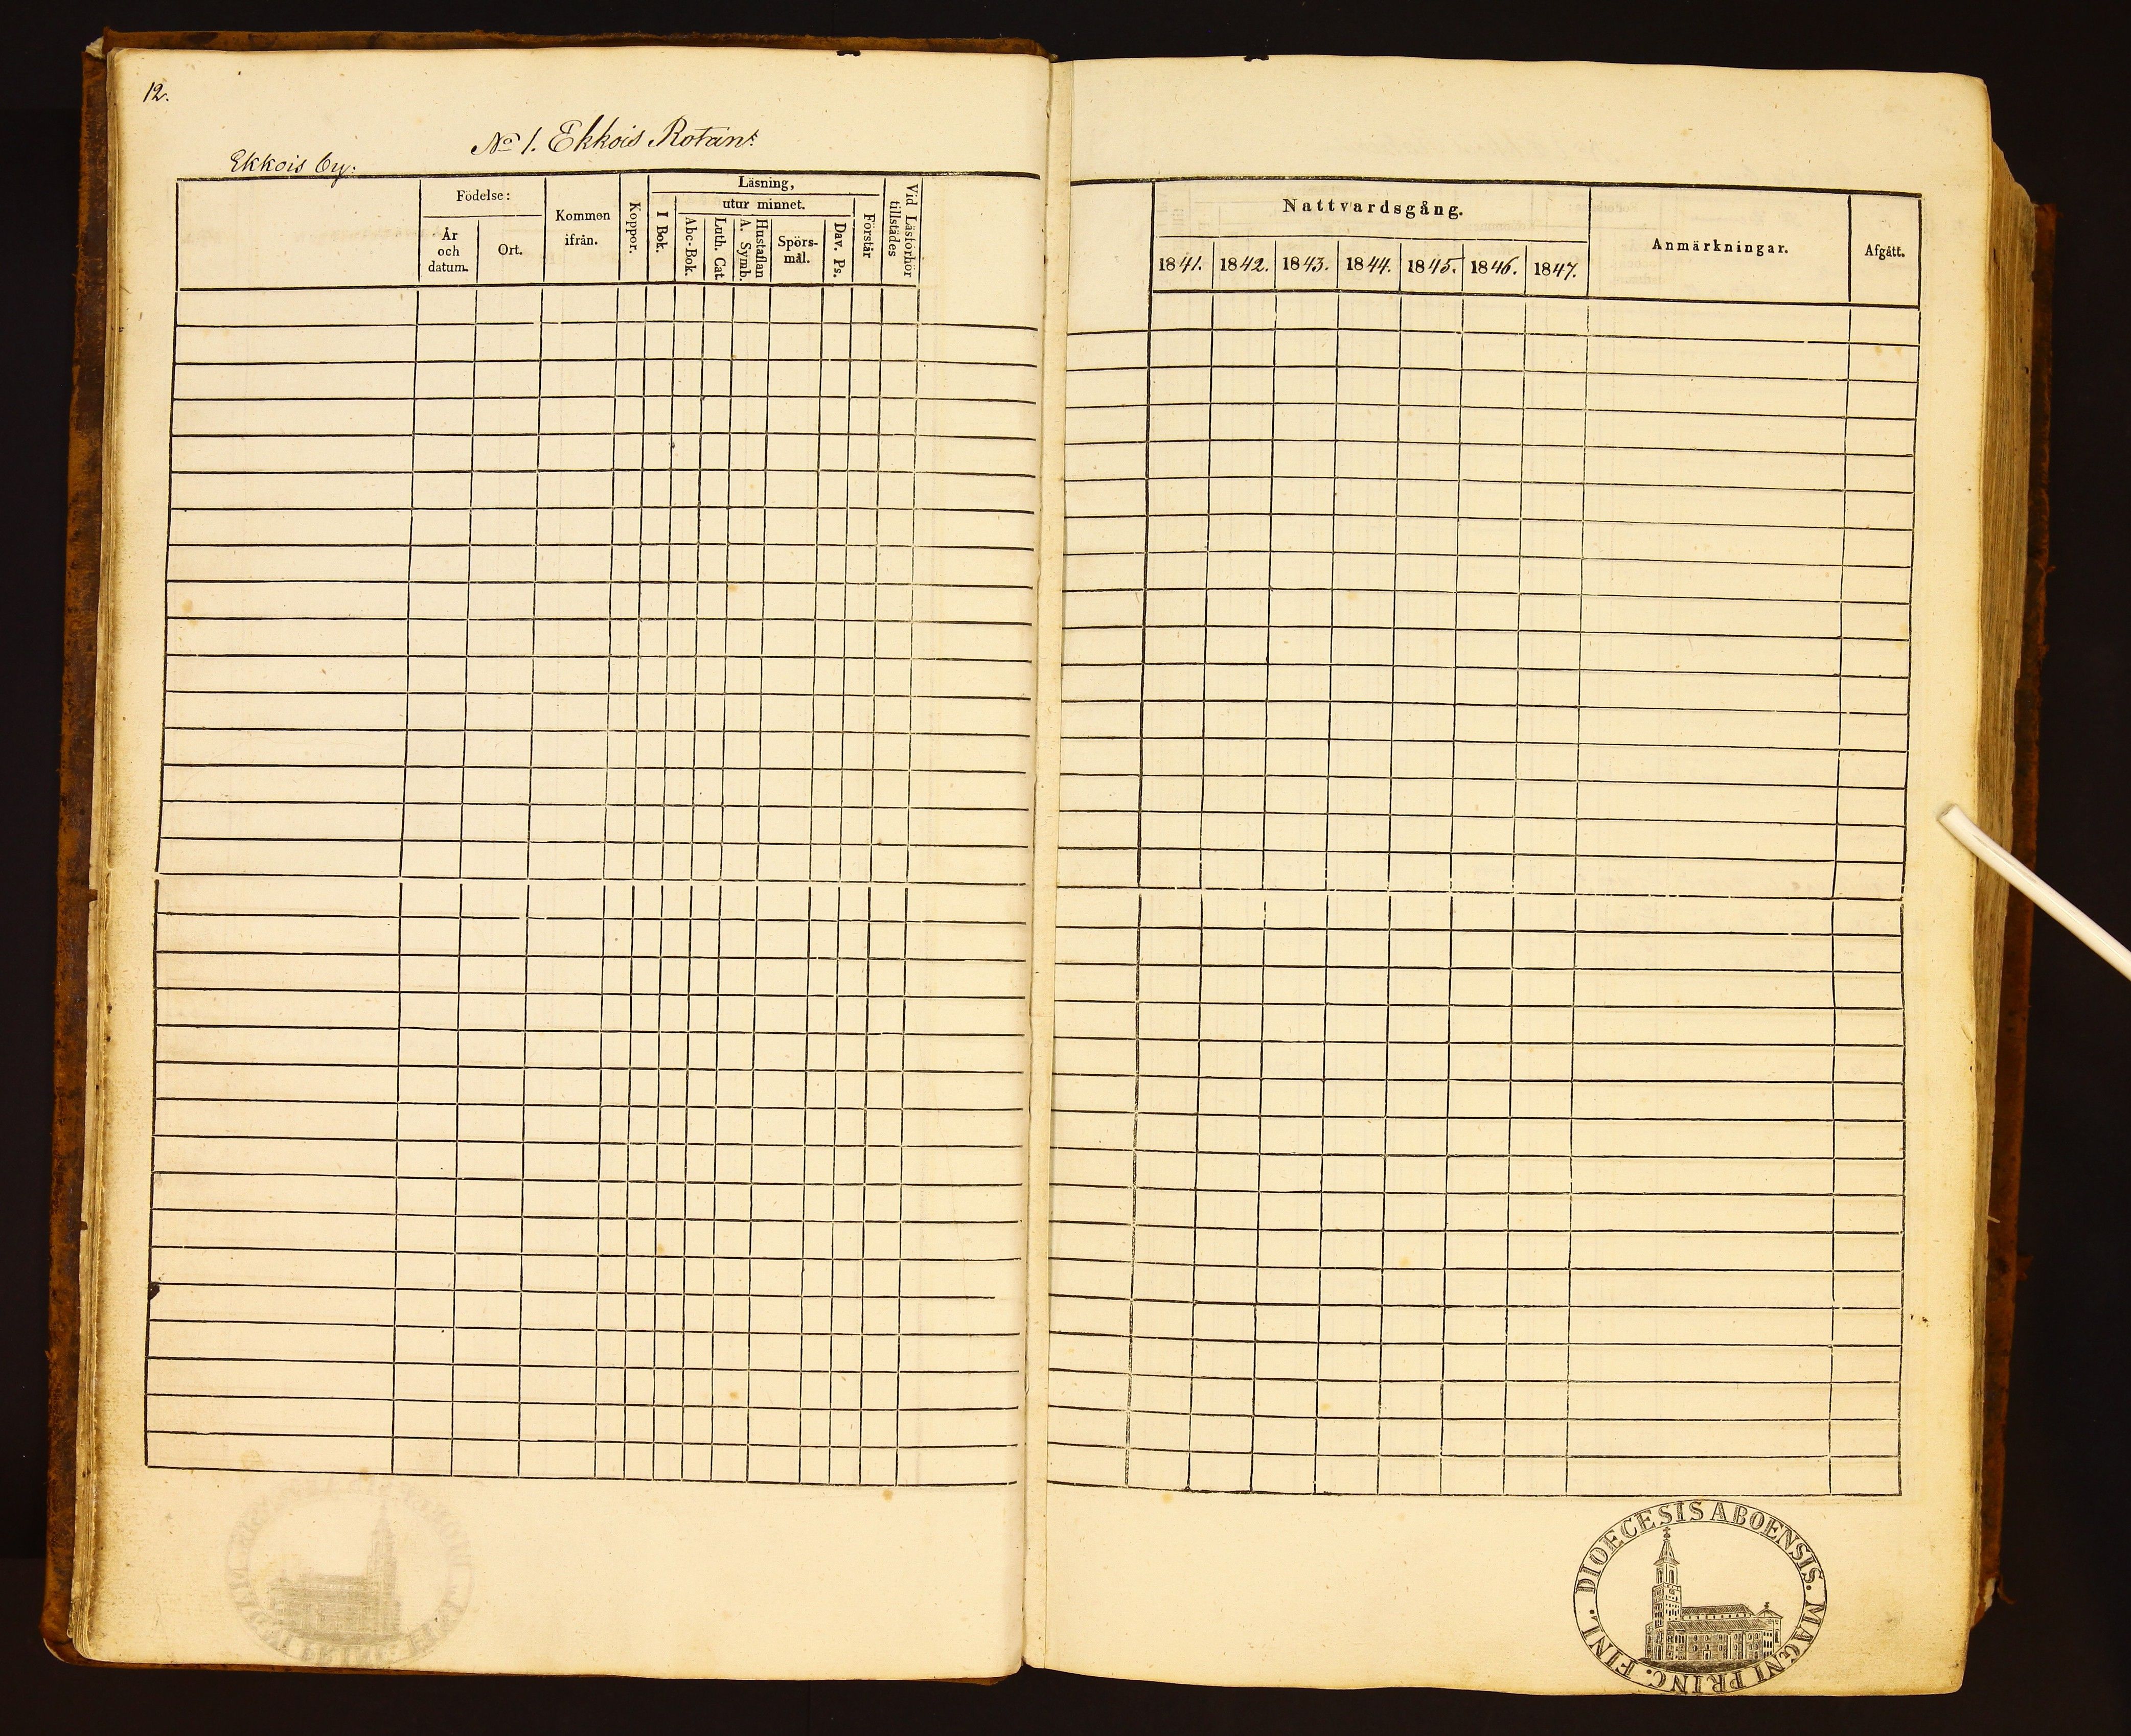 12.
No 1. Ekkois Rotan:
Ekkois by:
Födelse:
År och datum.
Ort.
Kommen ifrån.
Koppor.
Läsning,
I Bok.
utur minnet.
Abc-Bok.
Luth. Cat.
A. Symb. Hustaflan
Spörsmål.
Dav. Ps.
Förstår
Vid Läsförhör tillstädes
Nattvardsgång.
1841. 1842. 1843. 1844. 1845. 1846. 1847.
Anmärkningar.
Afgått.
DIOECESIS ABOENSIS. MAGNI PRINC. FINL.